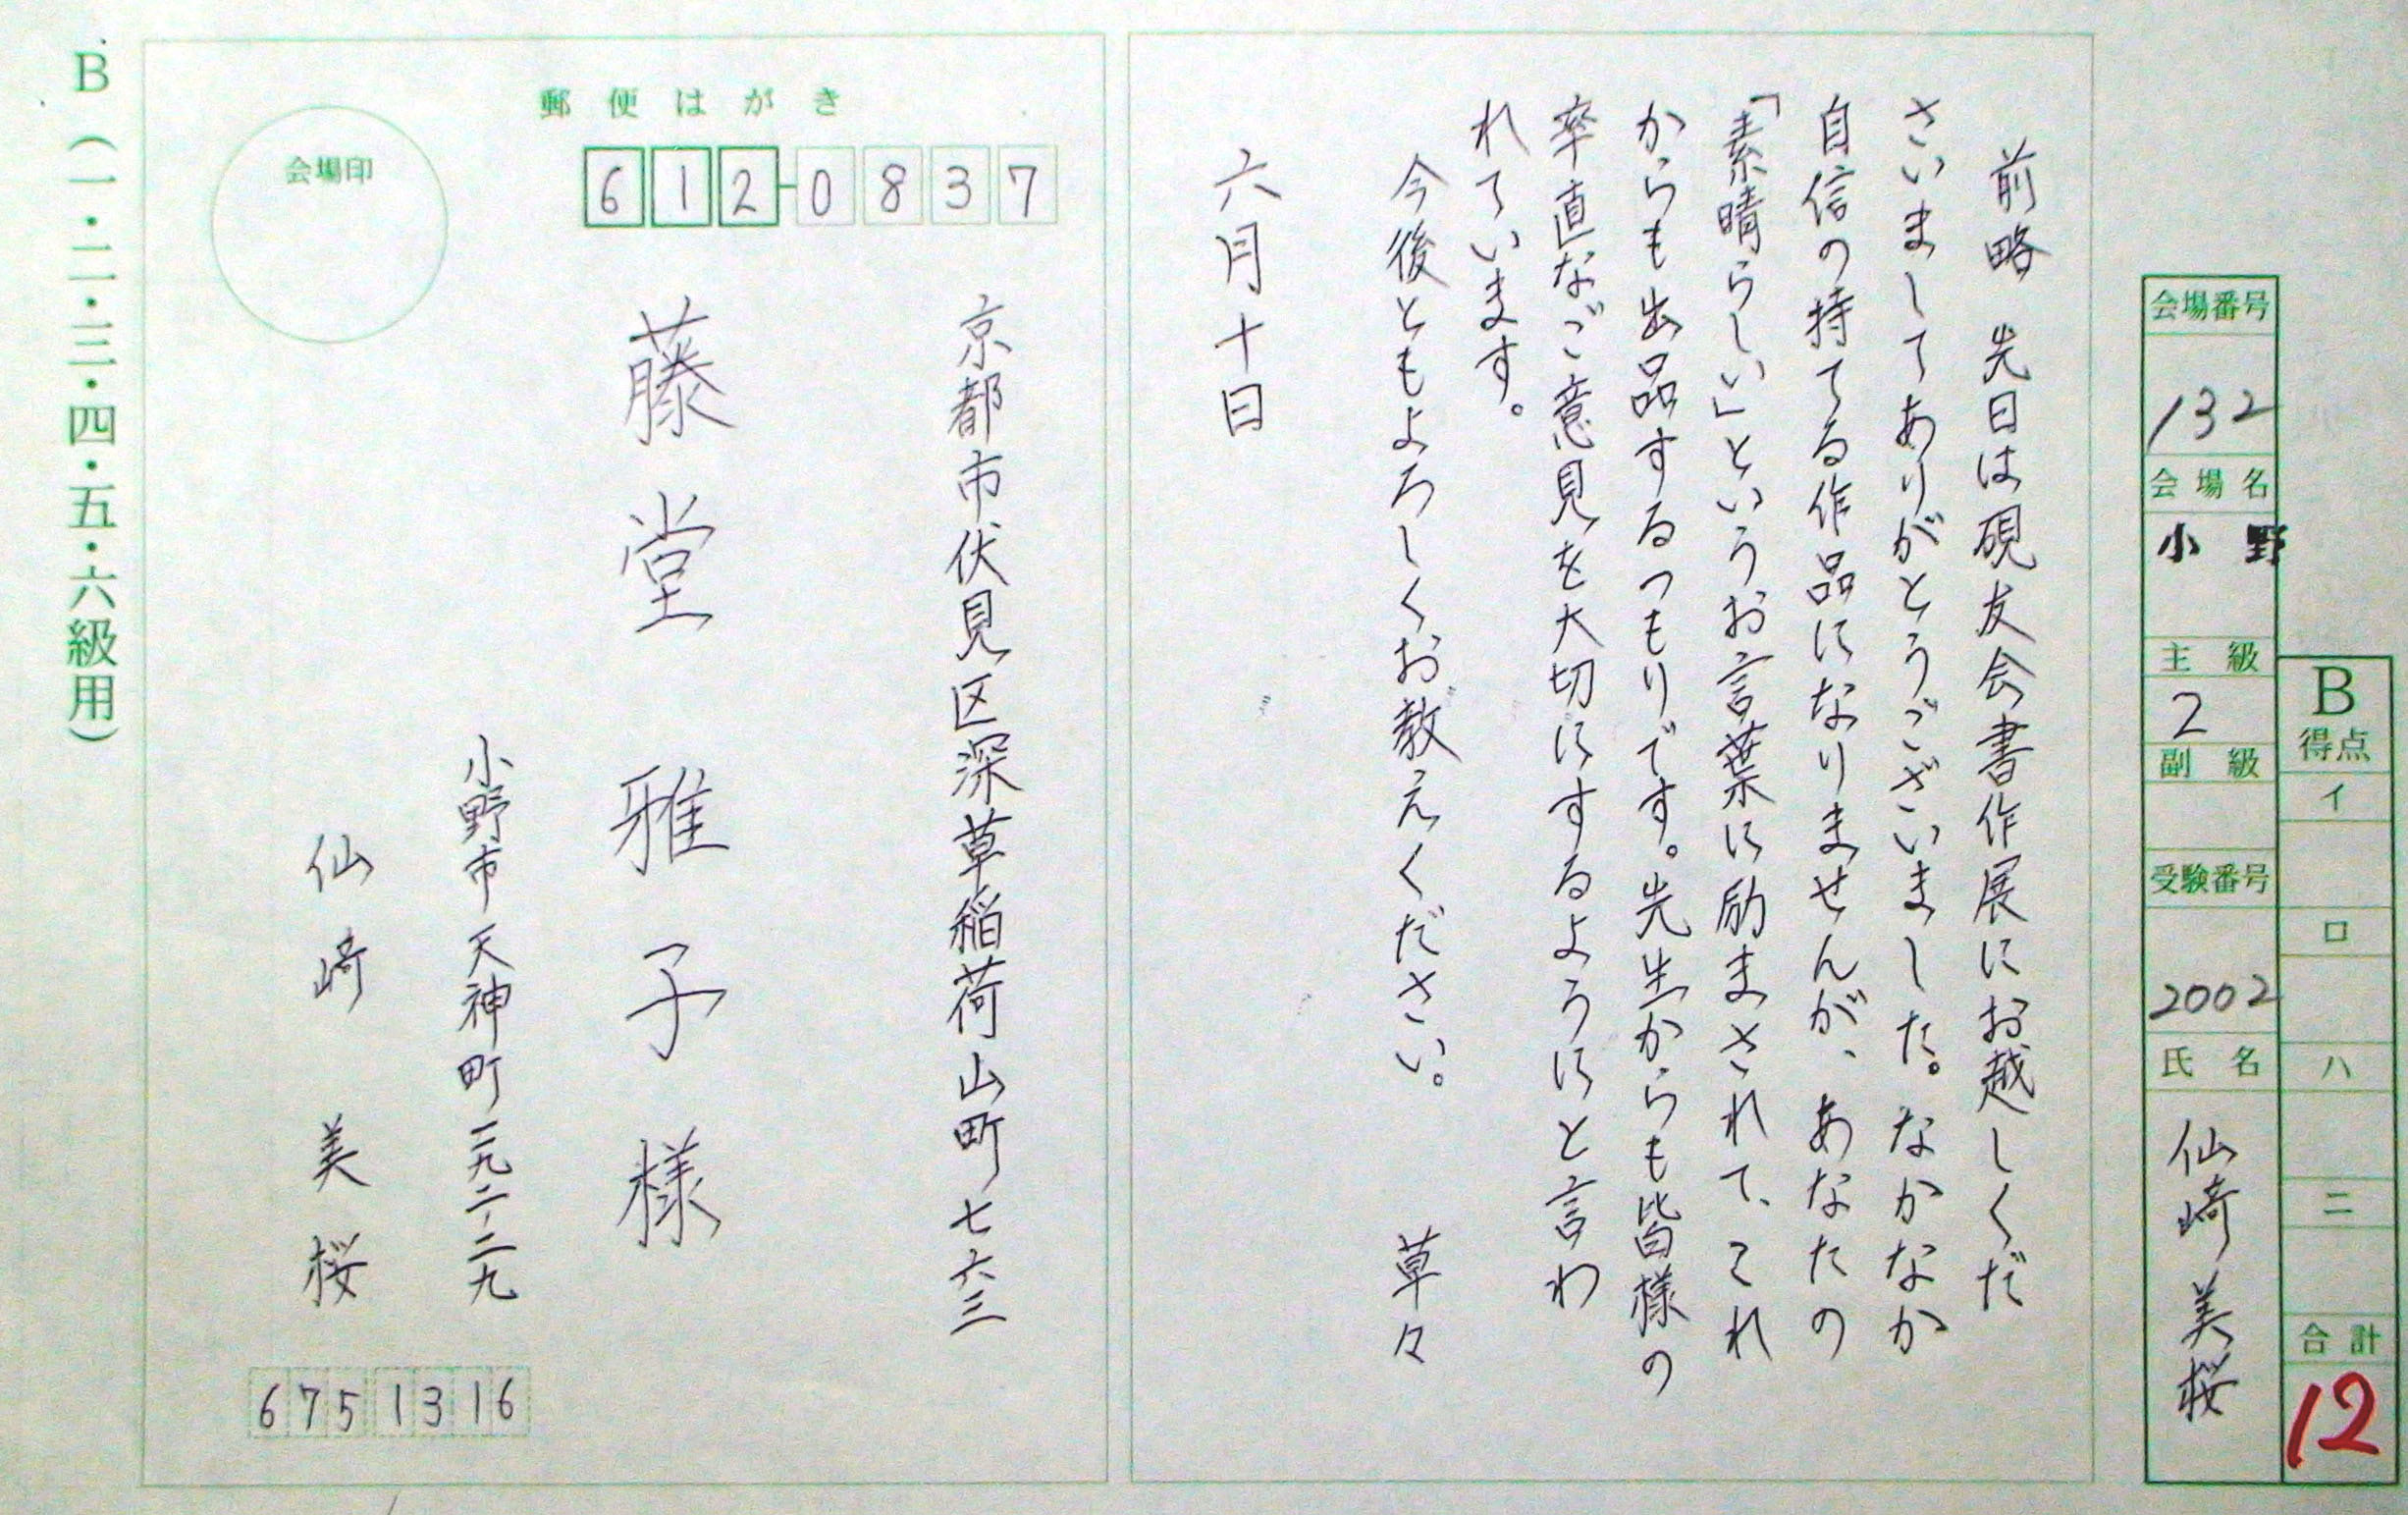 会場番号
132
会場名
小野
主級
2
副級
受験番号
2002
氏名
仙崎美桜
B
得点
イ
ロ
ハ
ニ
合計
12
前略 先日は硯友会書作展にお越しくだ
さいましてありがとうございました。なかなか
自信の持てる作品になりませんが、あなたの
「素晴らしい」というお言葉に励まされて、これ
からも出品するつもりです。先生からも皆様の
率直なご意見を大切にするようにと言わ
れています。
今後ともよろしくお教えください。 草々
六月十日
郵便はがき
612-0837
会場印
京都市伏見区深草稲荷山町七六三
藤堂雅子様
小野市天神町一九二-二九
仙崎美桜
6751316
B（一・二・三・四・五・六級用）